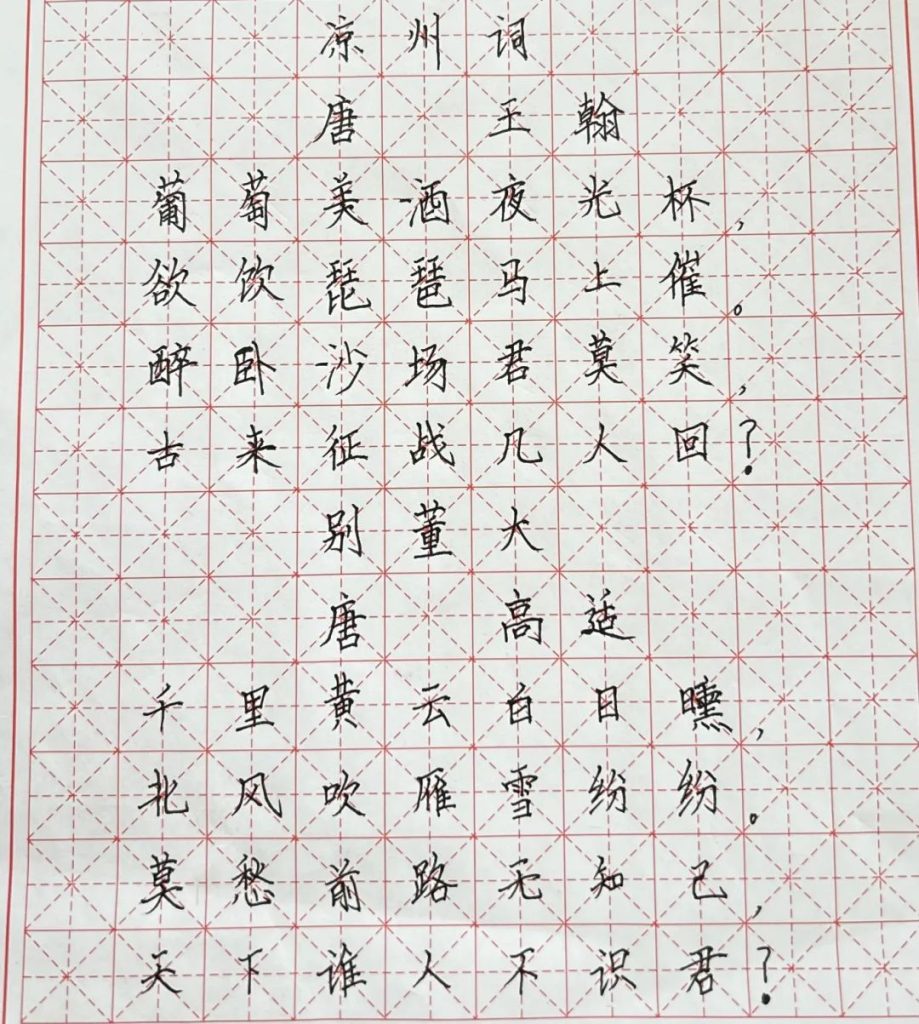 凉州词
唐 王翰
葡萄美酒夜光杯,
欲饮琵琶马上催。
醉卧沙场君莫笑,
古来征战几人回?
别董大
唐 高适
千里黄云白日曛,
北风吹雁雪纷纷。
莫愁前路无知己,
天下谁人不识君?